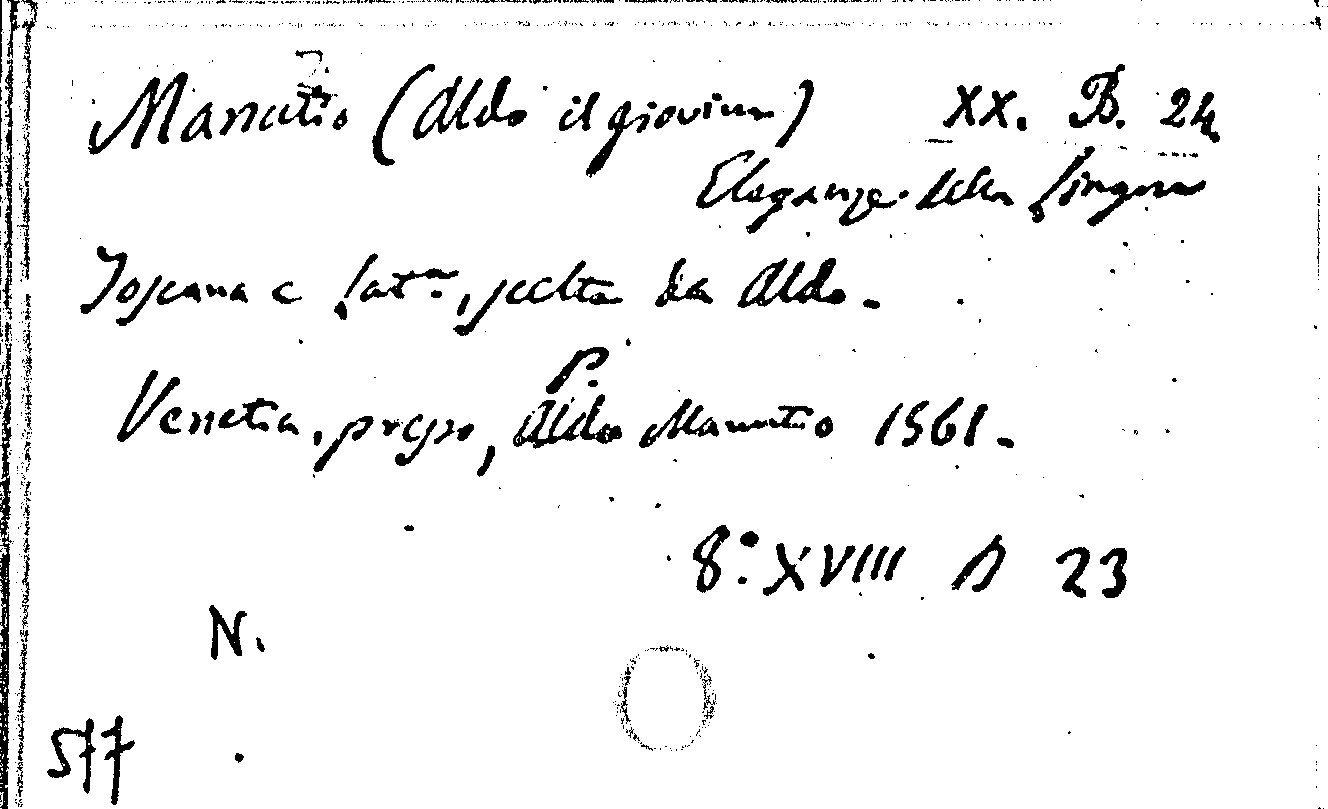 Manutio (Aldo il giovine) XX. B. 24
Eleganze della lingua
Toscana e latª, scelte da Aldo.
P.
Venetia, presso, Aldo Manutio 1561.
8.º XVIII D 23
N.
577